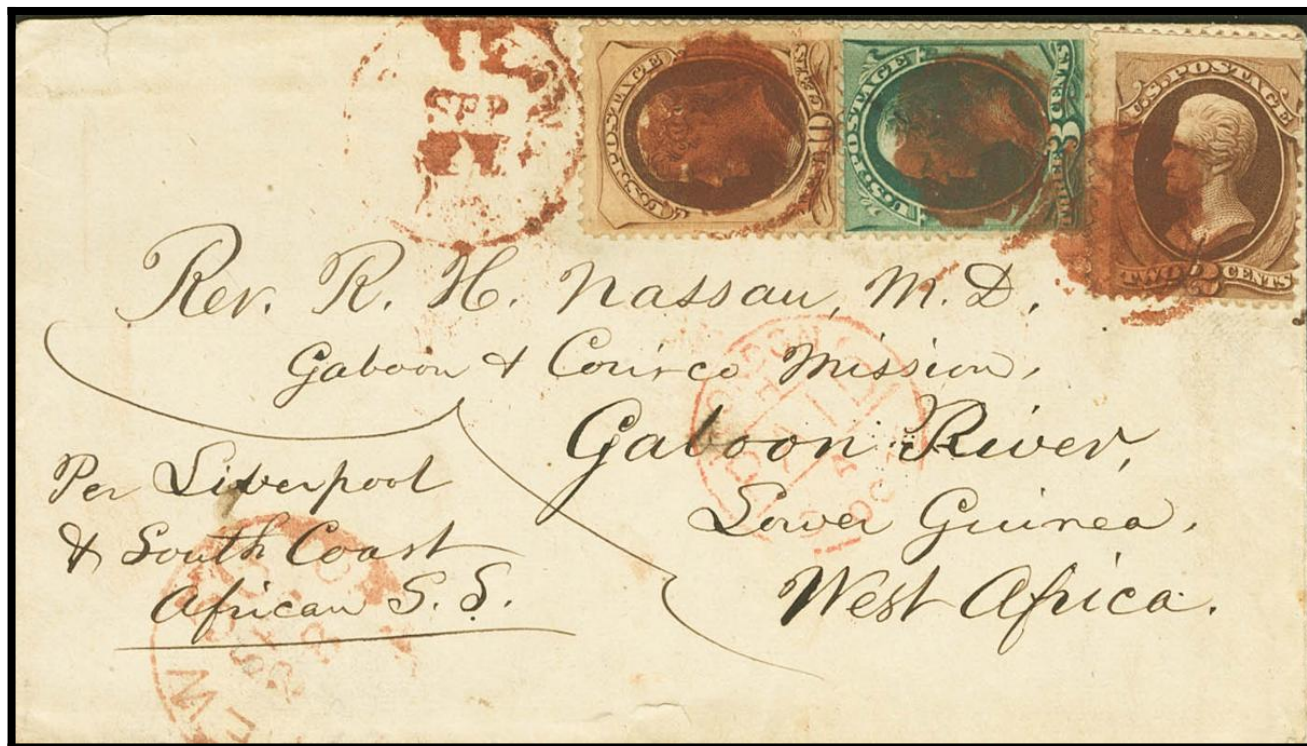 U.S. POSTAGE
10
CENTS
U.S. POSTAGE
THREE 3 CENTS
U.S. POSTAGE
TWO 2 CENTS
SEP
Rev. R. H. Nassau, M. D.
Gaboon & Corisco Mission,
Gaboon River,
Lower Guinea,
West Africa.
Per Liverpool
& South Coast
African S. S.
LONDON
PAID
NEW